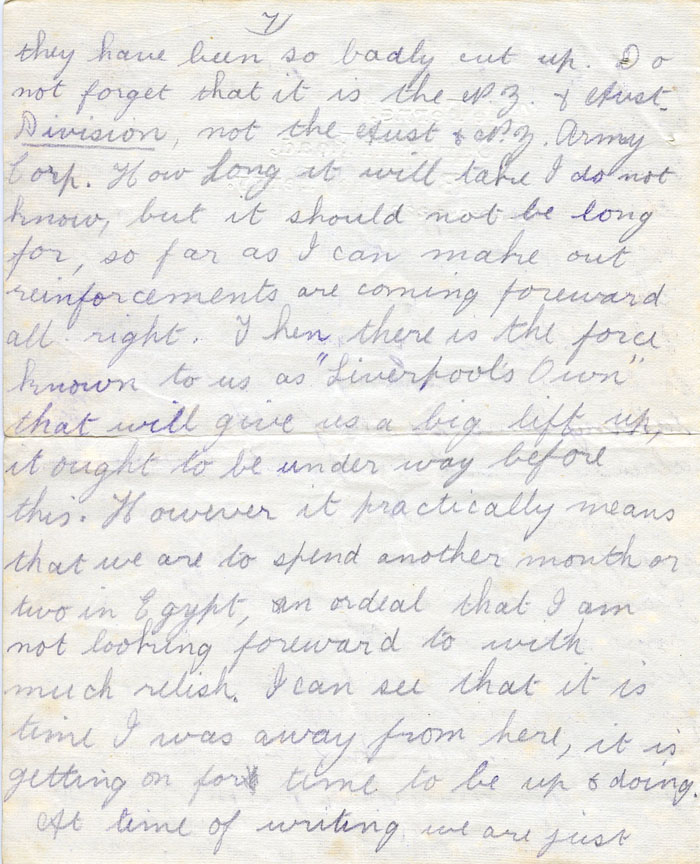 7/
they have been so badly cut up. Do
not forget that it is the N.Z. & Aust.
Division, not the Aust & N.Z. Army
Corp. How long it will take I do not
know, but it should not be long
for, so far as I can make out
reinforcements are coming foreward
all right. Then there is the force
known to us as "Liverpool's Own"
that will give us a big lift up,
it ought to be under way before
this. However it practically means
that we are to spend another month or
two in Egypt, an ordeal that I am
not looking foreward to with
much relish. I can see that it is
time I was away from here, it is
getting on for time to be up & doing.
At time of writing we are just